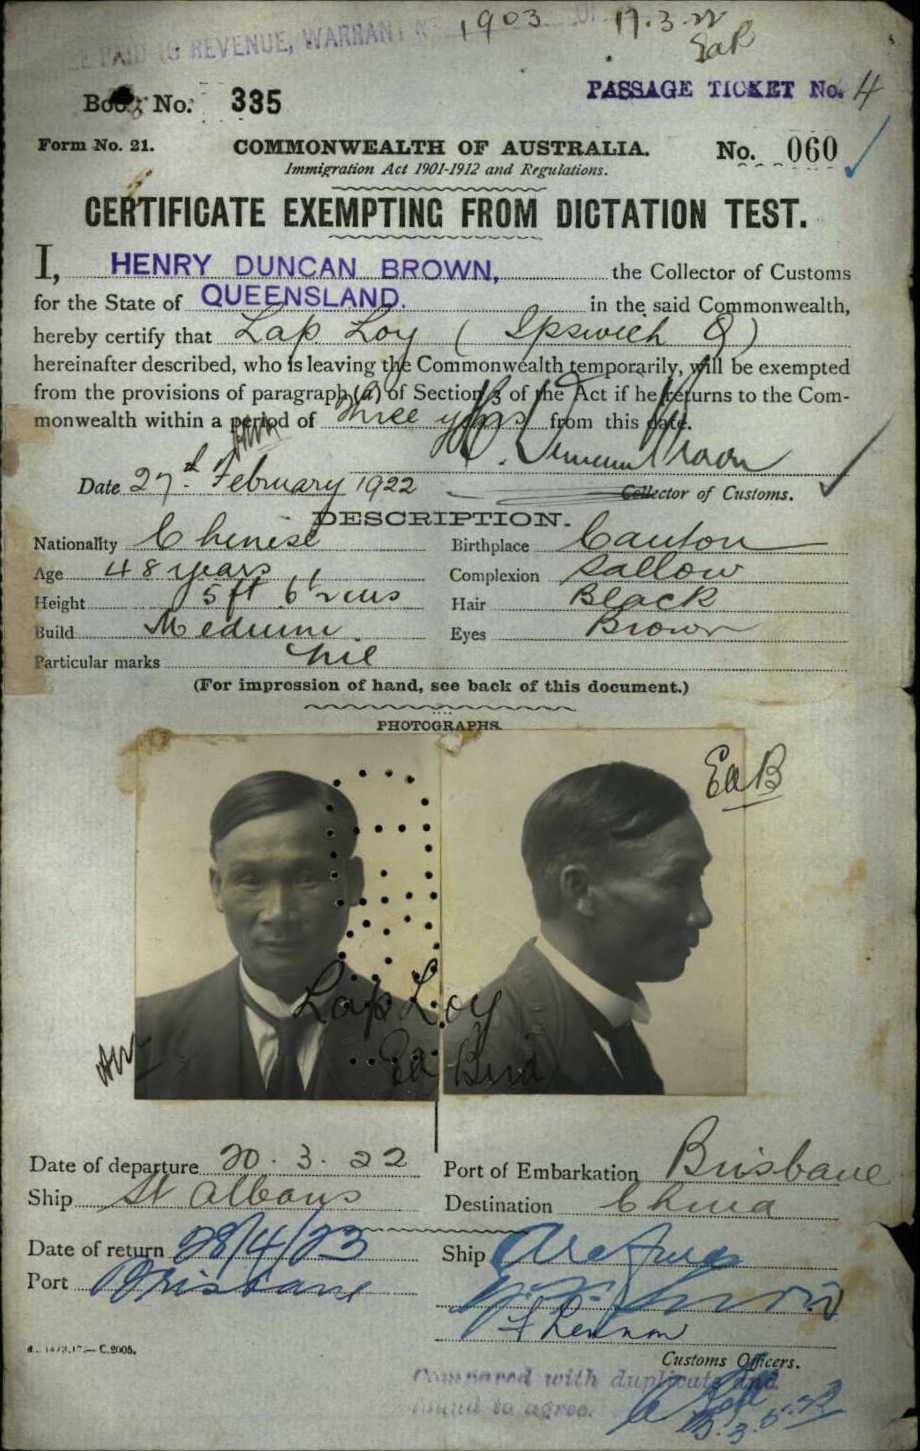 FEE PAID TO REVENUE, WARRANT No. 1903 OF 17.3.22
EaB
PASSAGE TICKET No. 4
Book No. 335
Form No. 21. COMMONWEALTH OF AUSTRALIA. No. 060
Immigration Act 1901-1912 and Regulations.
CERTIFICATE EXEMPTING FROM DICTATION TEST.
I, HENRY DUNCAN BROWN, the Collector of Customs
for the State of QUEENSLAND. in the said Commonwealth,
hereby certify that Lap Loy (Ipswich Q)
hereinafter described, who is leaving the Commonwealth temporarily, will be exempted
from the provisions of paragraph (a) of Section 3 of the Act if he returns to the Com-
monwealth within a period of three years from this date.
H. Duncan Brown
Date 27th February 1922 Collector of Customs.
DESCRIPTION.
Nationality Chinese Birthplace Canton
Age 48 years Complexion Sallow
Height 5 ft 6 1/2 ins Hair Black
Build Medium. Eyes Brown
Particular marks nil
(For impression of hand, see back of this document.)
PHOTOGRAPHS.
EaB
Lap Loy
Ea Bird
Date of departure 20.3.22 Port of Embarkation Brisbane
Ship St Albans Destination China
Date of return 28/4/23 Ship Arafura
Port Brisbane
Customs Officers.
C.2005.
Compared with duplicate and
found to agree.